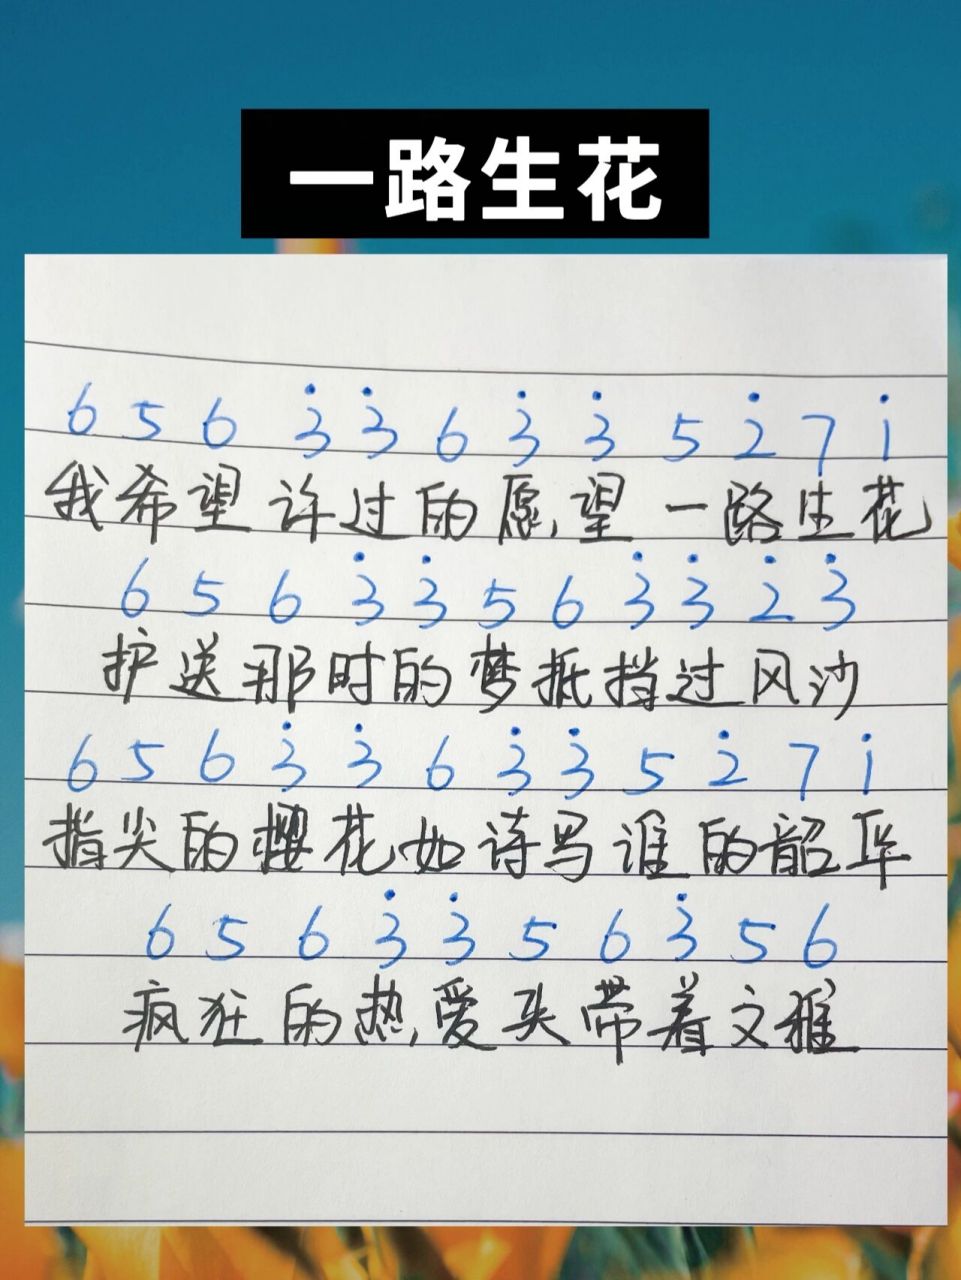 一路生花
6 5 6 3̇ 3̇ 6 3̇ 3̇ 5 2̇ 7 1̇
我希望许过的愿望一路生花
6 5 6 3̇ 3̇ 5 6 3̇ 3̇ 2̇ 3̇
护送那时的梦抵挡过风沙
6 5 6 3̇ 3̇ 6 3̇ 3̇ 5 2̇ 7 1̇
指尖的樱花如诗写谁的韶华
6 5 6 3̇ 3̇ 5 6 3̇ 5 6
疯狂的热爱夹带着文雅